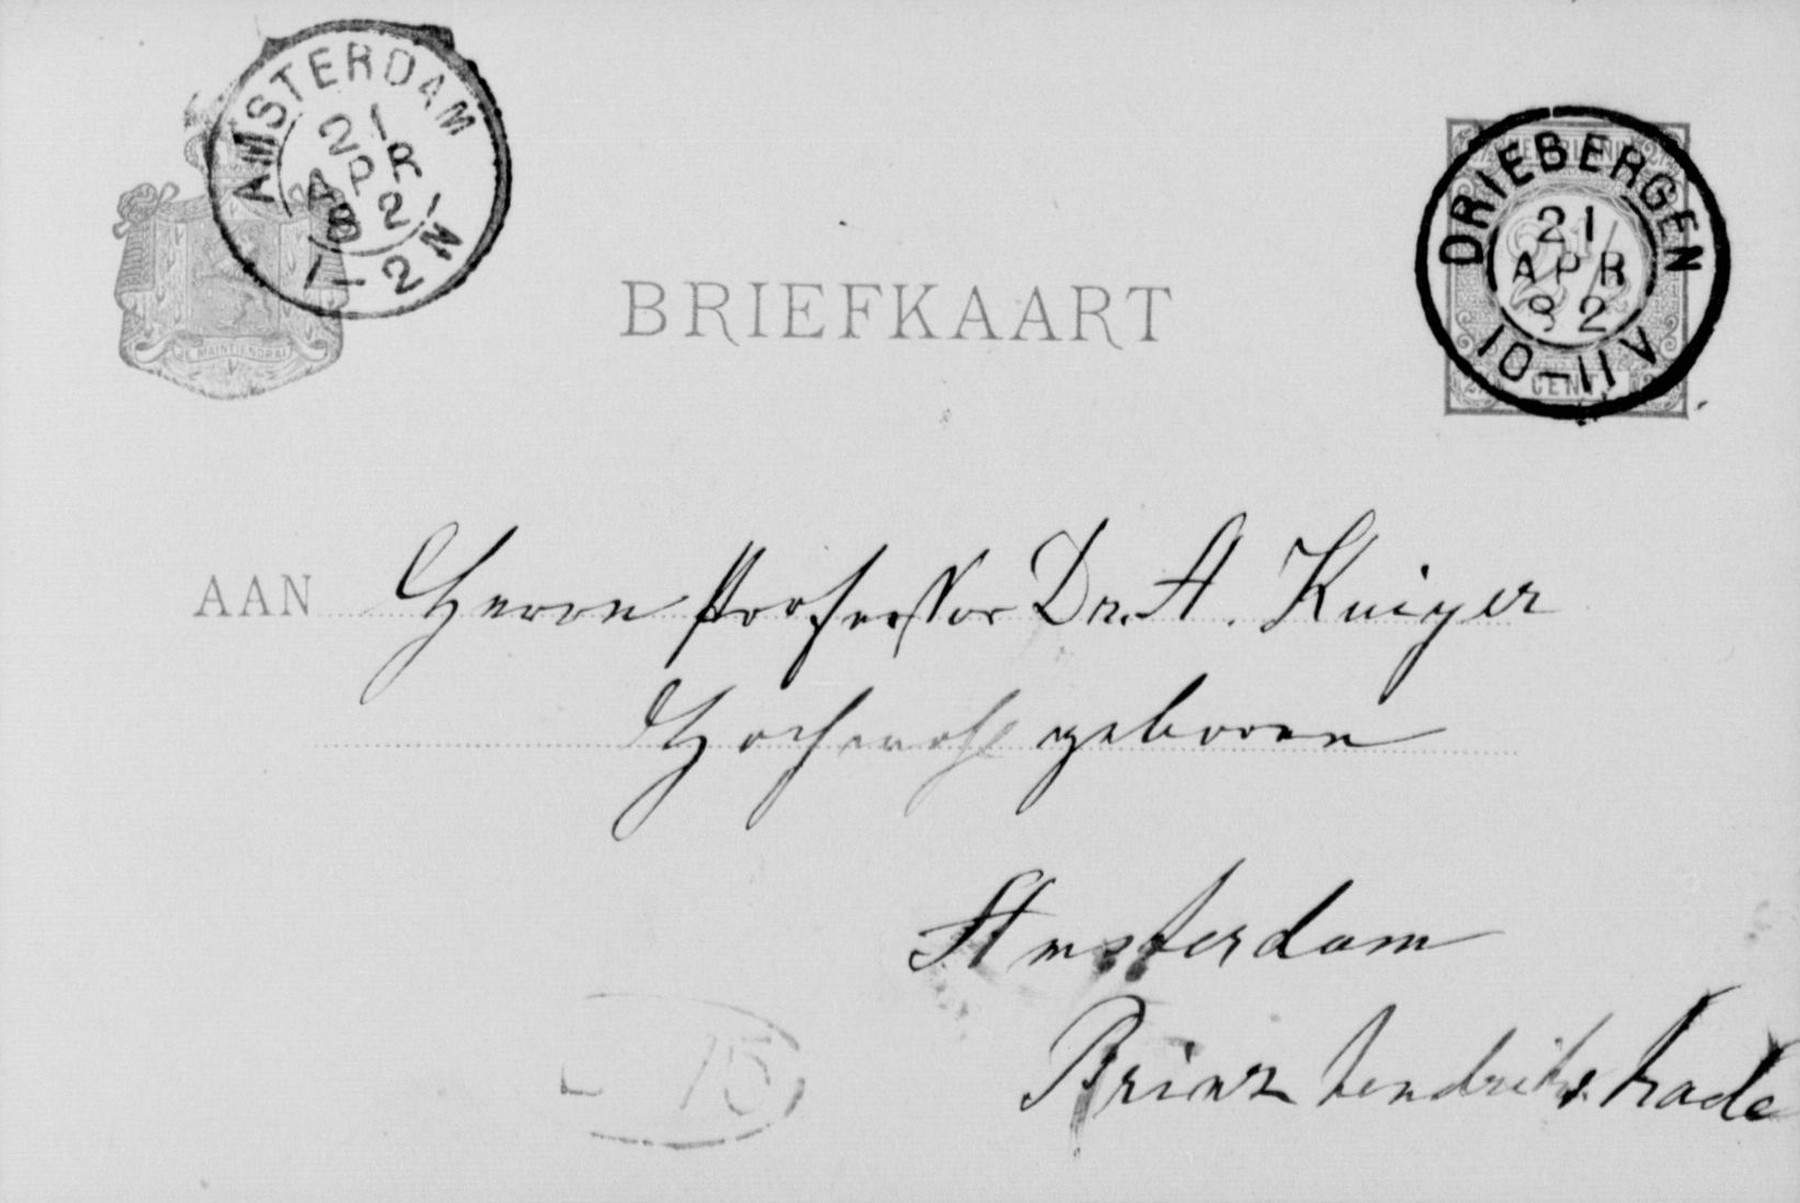 AMSTERDAM
21
APR
92
1-2 N
JE MAINTIENDRAI
BRIEFKAART
DRIEBERGEN
21
APR
92
10-11V
CENT
AAN Herrn Professor Dr. A. Kuijper
Hochwohlgeboren
Amsterdam
Prinz hendrikskade
15